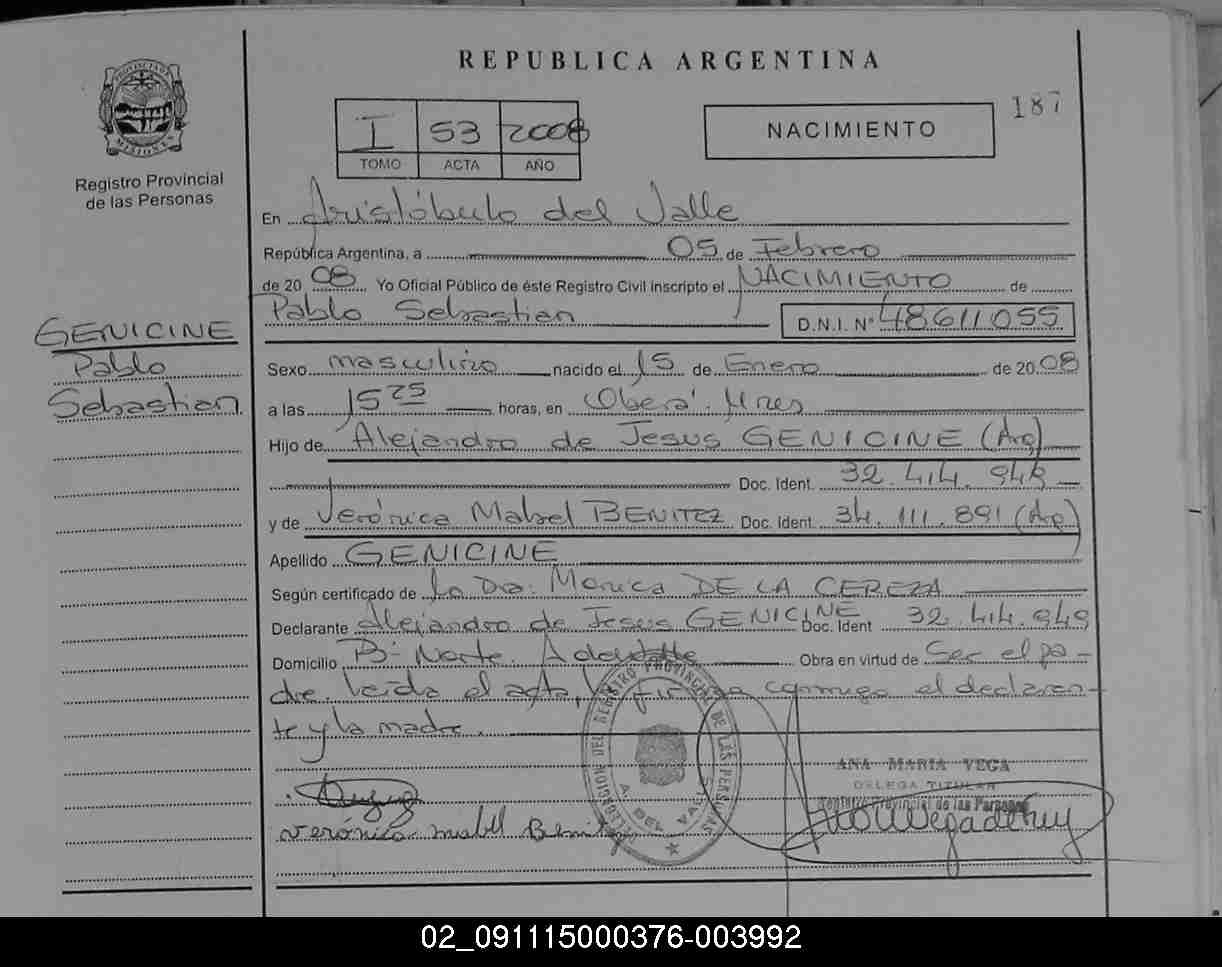 REPUBLICA ARGENTINA
PROVINCIA DE
MISIONES
Registro Provincial
de las Personas
I 53 2008
TOMO ACTA AÑO
NACIMIENTO
187
En Aristóbulo del Valle
República Argentina, a 05 de Febrero
de 20 08 Yo Oficial Público de éste Registro Civil inscripto el NACIMIENTO de
Pablo Sebastian D.N.I. Nº 48611055
GENICINE
Pablo
Sebastian
Sexo masculino nacido el 15 de Enero de 20 08
a las 15 25 horas, en Oberá. Mnes
Hijo de Alejandro de Jesus GENICINE (Arg)
Doc. Ident. 32.414.949
y de Verónica Mabel BENITEZ Doc. Ident. 34.111.891 (Arg)
Apellido GENICINE
Según certificado de la Dra. Monica DE LA CEREZA
Declarante Alejandro de Jesus GENICINE Doc. Ident 32.414.949
Domicilio Bº Norte. A del Valle Obra en virtud de Ser el pa-
dre. Leída el acta, firma conmigo el declaran-
te y la madre.
DELEGACION DEL REGISTRO PROVINCIAL DE LAS PERSONAS
A. DEL VALLE
ANA MARIA VEGA
DELEGA. TITULAR
Registro Provincial de las Personas
Verónica mabel Benitez
02_091115000376-003992